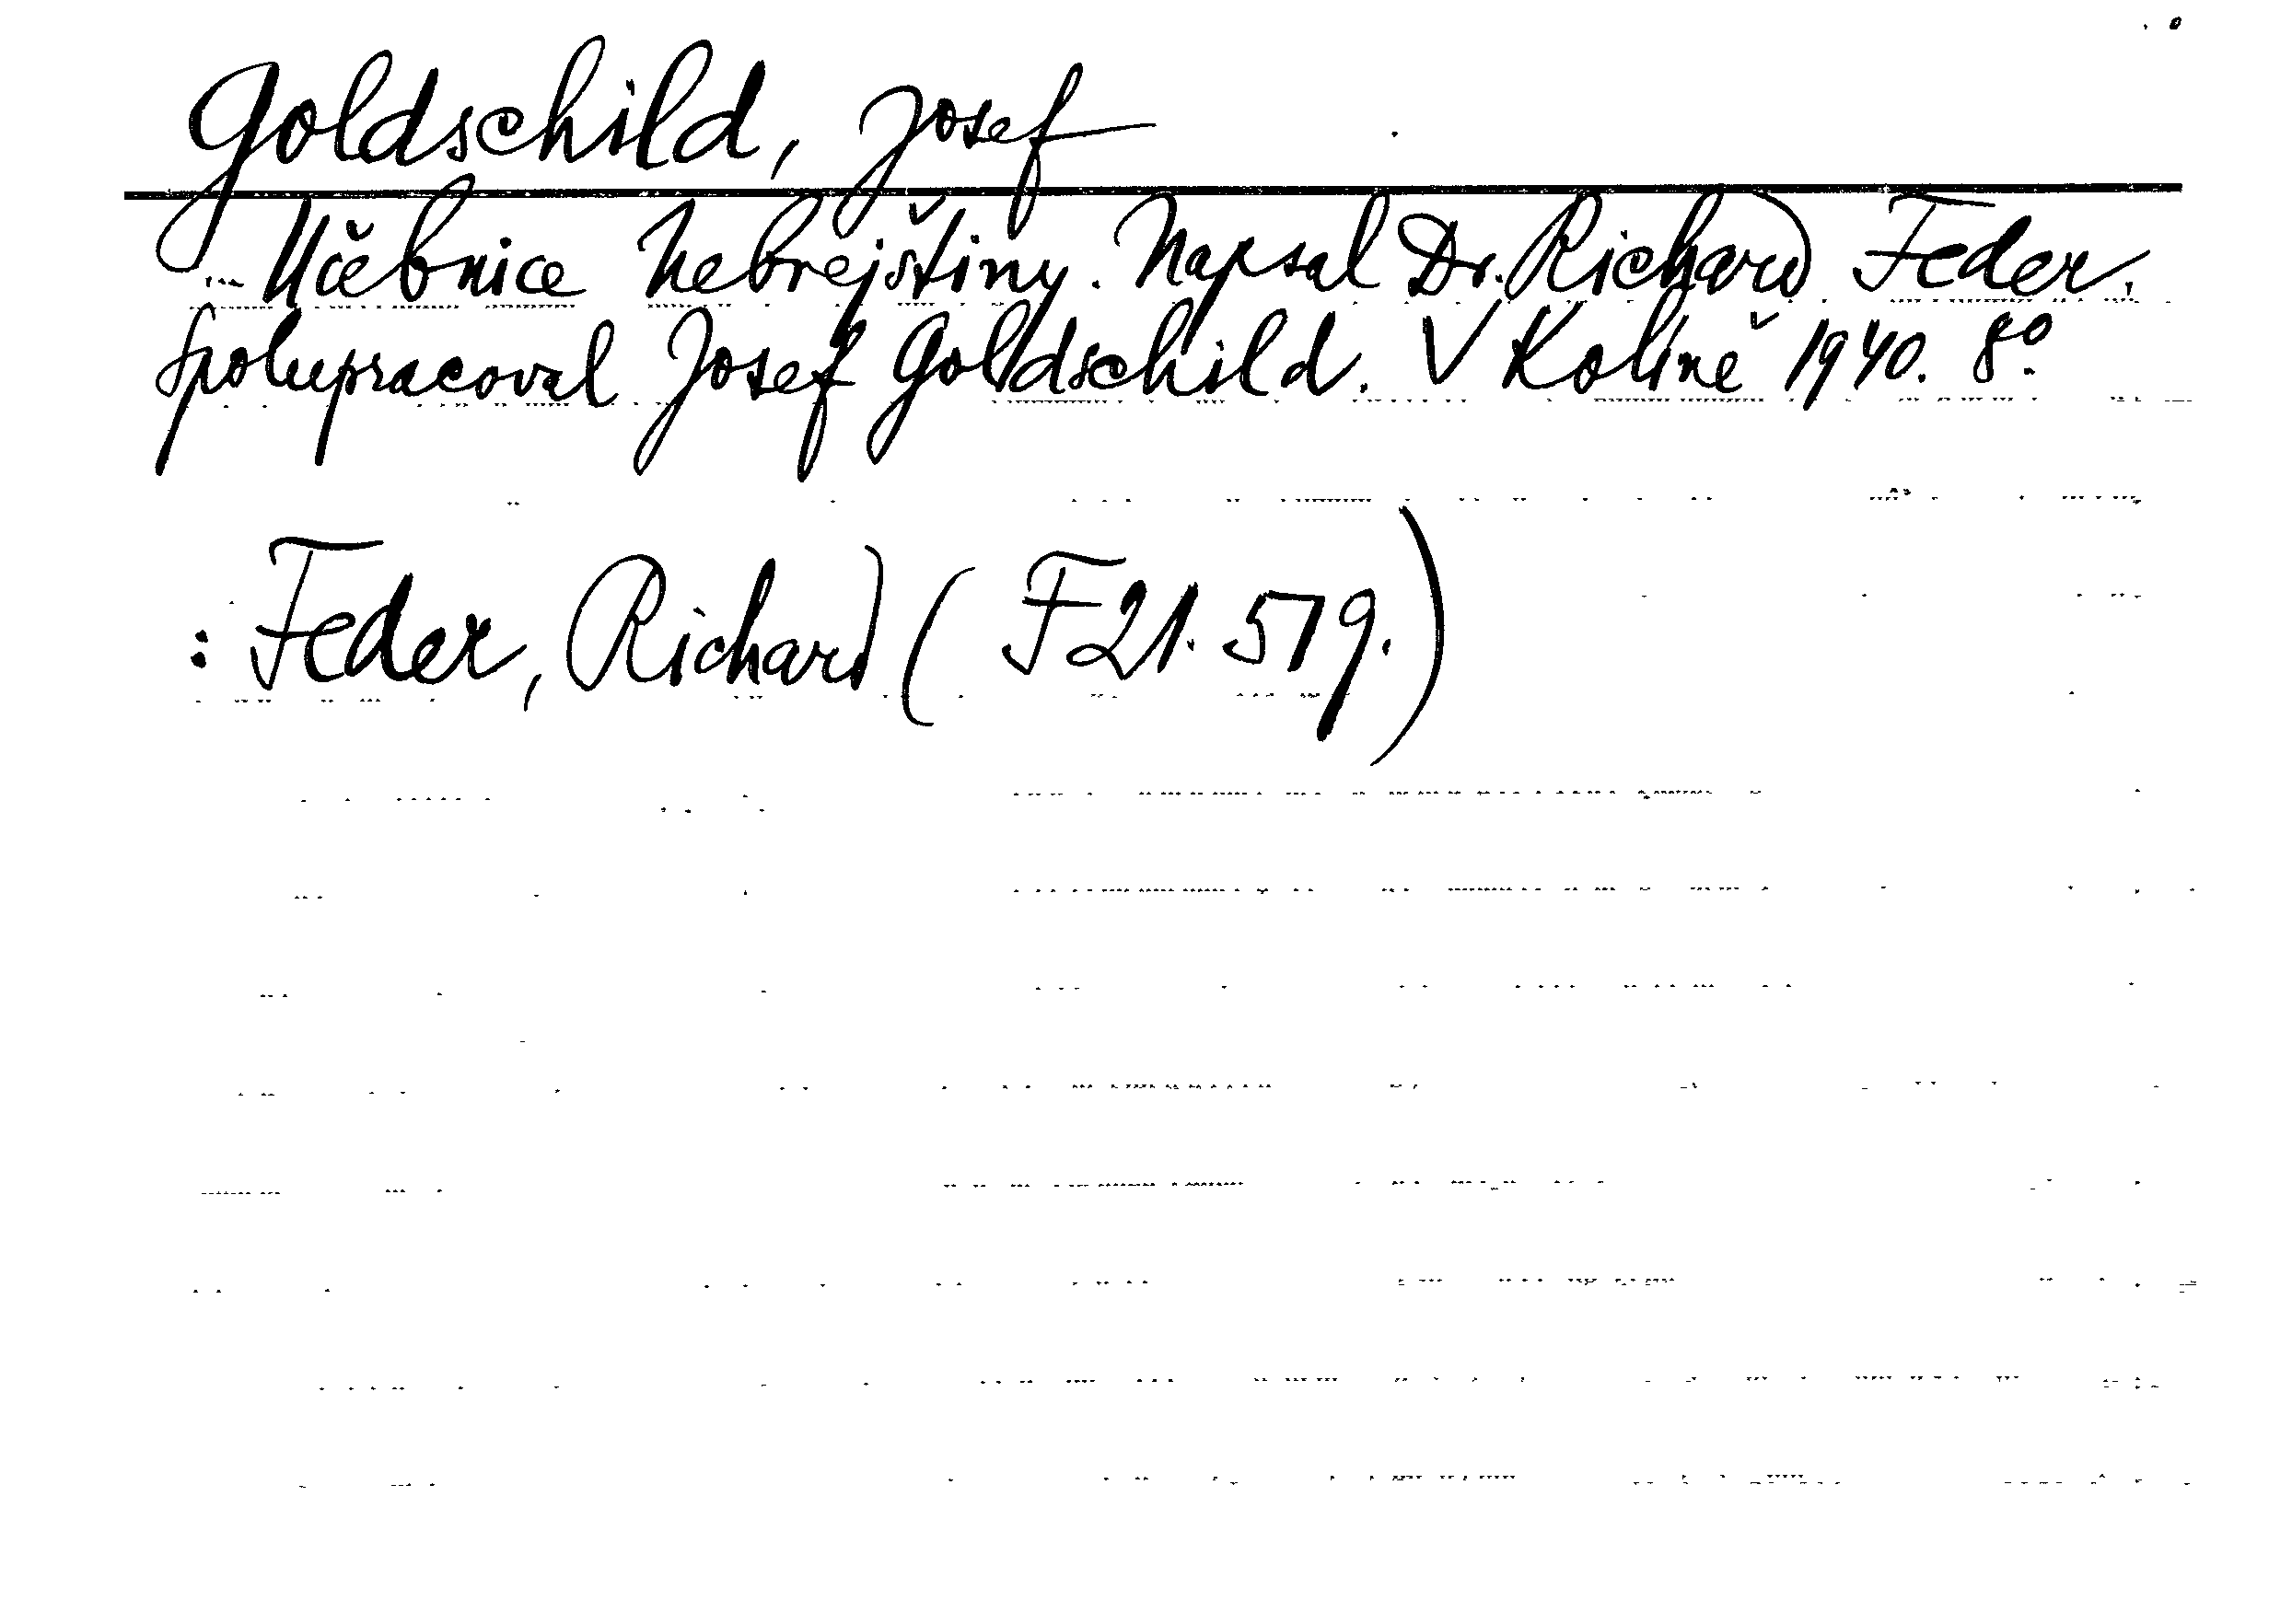 Goldschild, Josef
Učebnice hebrejštiny. Napsal Dr. Richard Feder.
Spolupracoval Josef Goldschild. V Kolíně 1940. 8°.
: Feder, Richard (F21.579.)